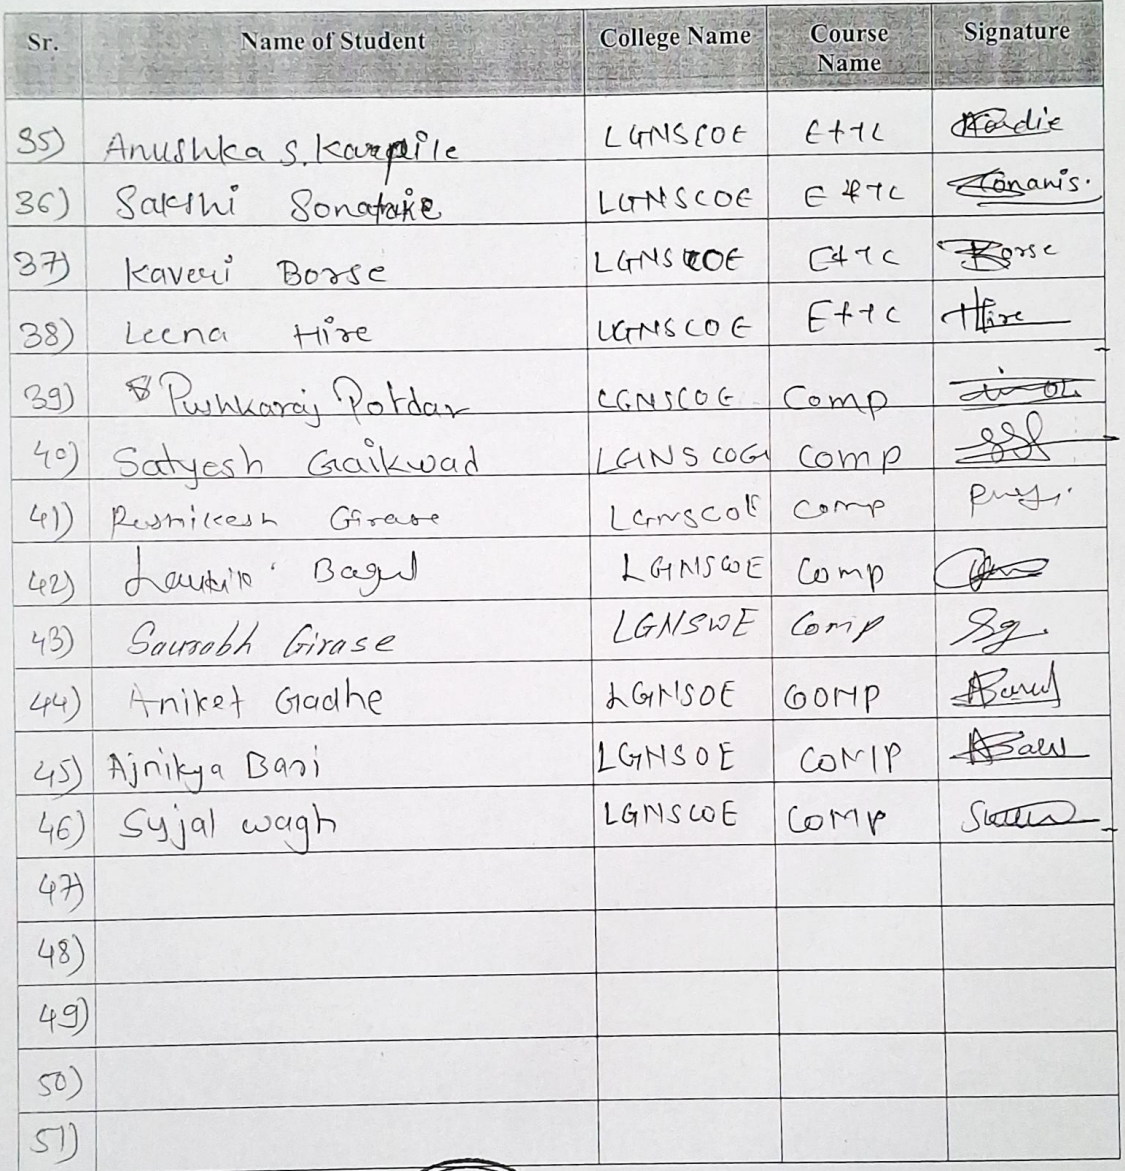 Sr. Name of Student College Name Course Name Signature
35) Anushka S. Karpile LGNSCOE E+TC
36) Sakshi Sonatake LGNSCOE E&TC
37) Kaveri Borse LGNSCOE E&TC Borse
38) Leena Hire LGNSCOE E+TC Hire
39) Pushkaraj Potdar LGNSCOE Comp
40) Satyesh Gaikwad LGNSCOE Comp
41) Girase LGNSCOE Comp
42) Bagul LGNSCOE Comp
43) Saurabh Girase LGNSCOE Comp Sg.
44) Aniket Gadhe LGNSOE COMP
45) Ajnikya Bari LGNSOE COMP
46) Syjal wagh LGNSCOE COMP
47)
48)
49)
50)
51)